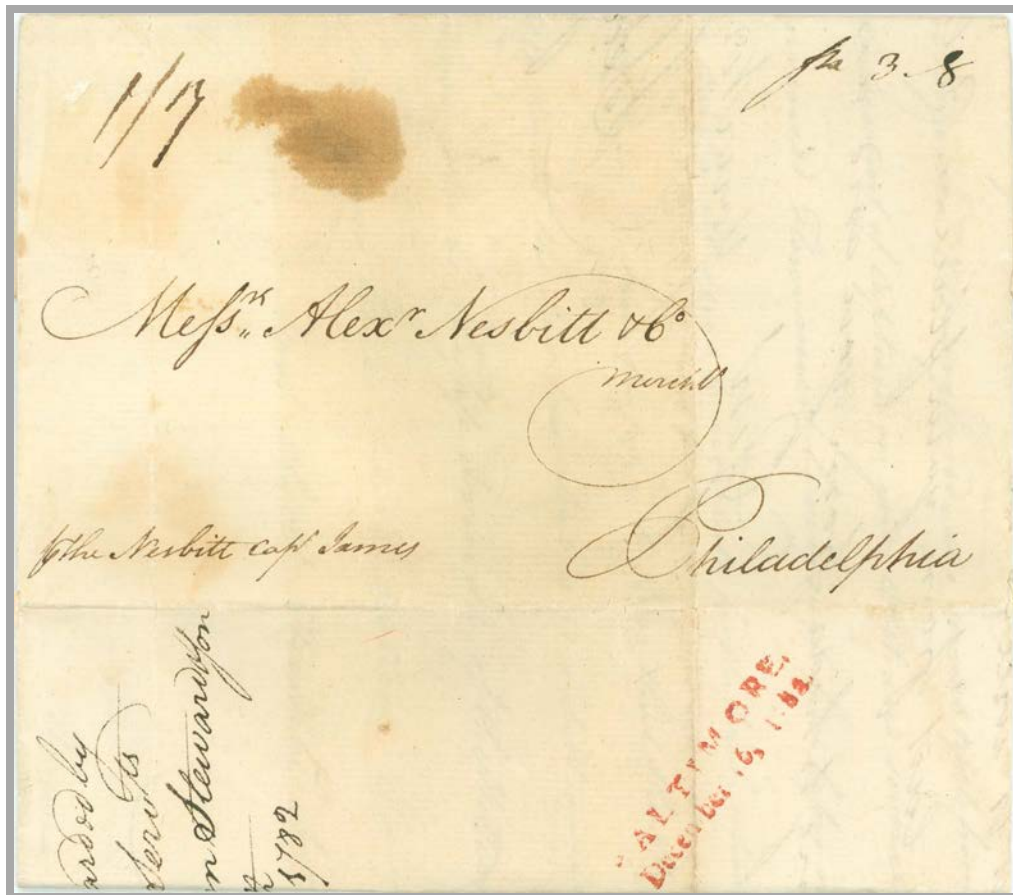 1/7
3.8
Messrs. Alexr Nesbitt & Co
Merchts
Philadelphia
the Nesbitt Capt James
arded by
Servts
n Stewardson
1782
BALTIMORE,
December 16, 1782.